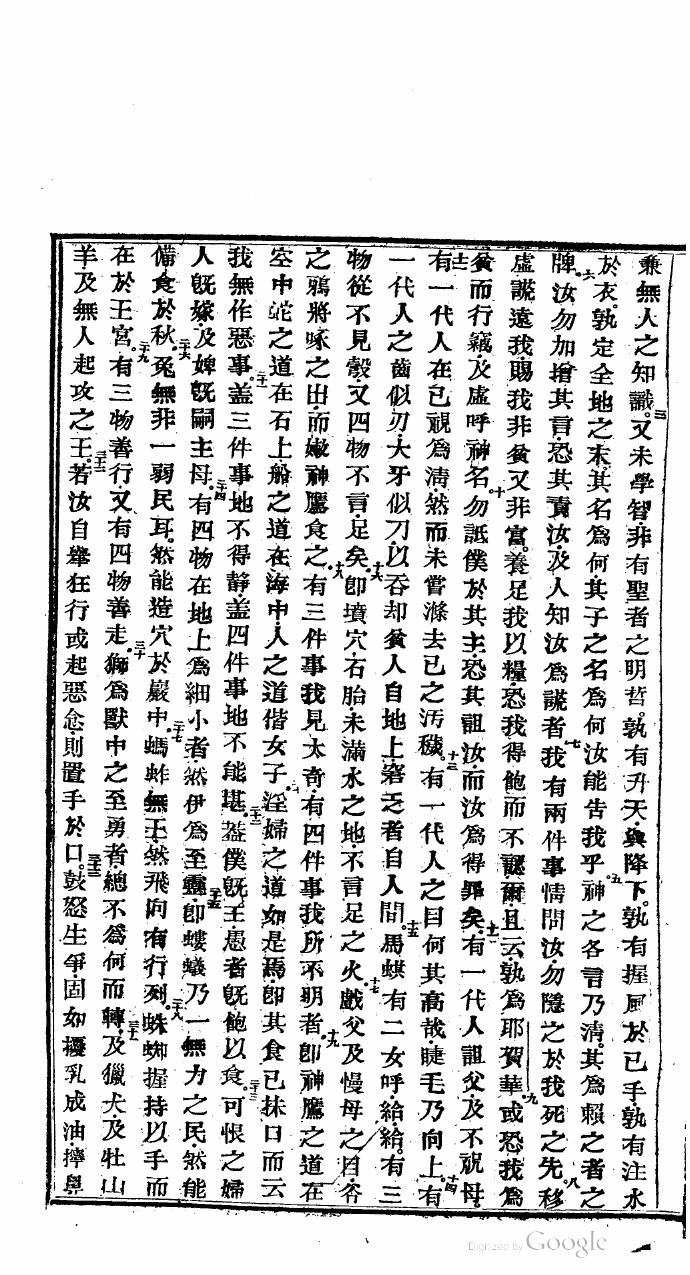 兼無人之知識。三又未學智。非有聖者之明哲。孰有升天與降下。孰有握風於已手。孰有注水
於衣。孰定全地之末。其名爲何。其子之名爲何。汝能告我乎。五神之各言乃清。其爲賴之者之
牌。六汝勿加增其言。恐其責汝。及人知汝爲謊者。七我有兩件事情問汝。勿隱之於我死之先。八移
虛謊遠我。賜我非貧又非富。養足我以糧。九恐我得飽而不認爾。且云孰爲耶賀華。或恐我爲
貧而行竊。及虛呼神名。十勿詆僕於其主。恐其詛汝。而汝爲得罪矣。十一有一代人詛父。及不祝母。
十二有一代人在已視爲清。然而未嘗滌去已之汚穢。十三有一代人之目何其高哉。睫毛乃向上。十四有
一代人之齒似刃。大牙似刀。以吞却貧人自地上。窘乏者自人間。十五馬蟥有二女。呼給給。有三
物從不見彀。又四物不言足矣。十六卽墳穴。石胎。未滿水之地。不言足之火。十七戲父及慢母之目。谷
之鴉將啄之出。而嫩神鷹食之。十八有三件事我見太奇。有四件事我所不明者。十九卽神鷹之道在
空中。蛇之道在石上。船之道在海中。人之道偕女子。二十淫婦之道如是焉。卽其食已抹口而云
我無作惡事。二十一蓋三件事地不得靜。蓋四件事地不能堪。二十二蓋僕旣王。愚者旣飽以食。二十三可恨之婦
人旣嫁。及婢旣嗣主母。二十四有四物在地上爲細小者。然伊爲至靈。二十五卽螻蟻乃一無力之民。然能
備食於秋。二十六兔無非一弱民耳。然能造穴於巖中。二十七螞蚱無王。然飛向有行列。二十八蛛蜘握持以手而
在於王宮。二十九有三物善行。又有四物善走。三十獅爲獸中之至勇者。總不爲何而轉。三十一及獵犬及牡山
羊及無人起攻之王。三十二若汝自舉狂行。或起惡念。則置手於口。三十三鼓怒生爭。固如擾乳成油。擰鼻
Digitized by Google